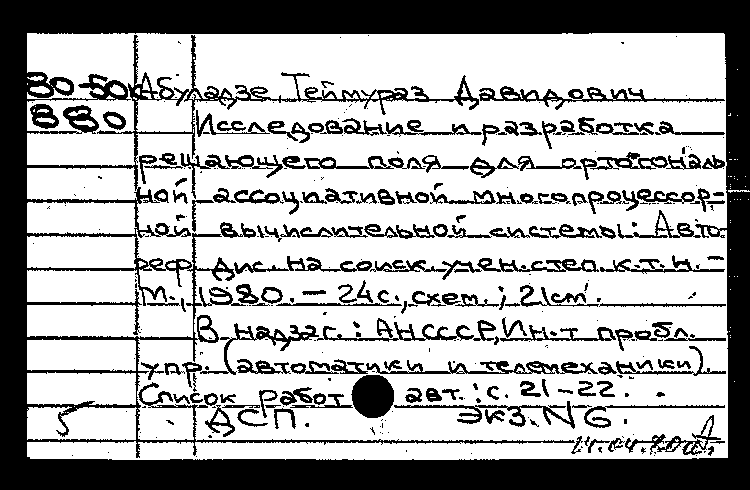 80-50к Абуладзе, Теймураз Давидович
880 Исследование и разработка
решающего поля для ортогональ
ной ассоциативной многопроцессор-
ной вычислительной системы: Авто-
реф. дис. на соиск. учен. степ. к.т.н. –
М., 1980. – 24 с., схем.; 21 cm.
В надзаг.: АН СССР, Ин-т пробл.
упр. (автоматики и телемеханики).
Список работ авт.: с. 21–22.
5 ДСП. Экз. N 6.
14.04.80